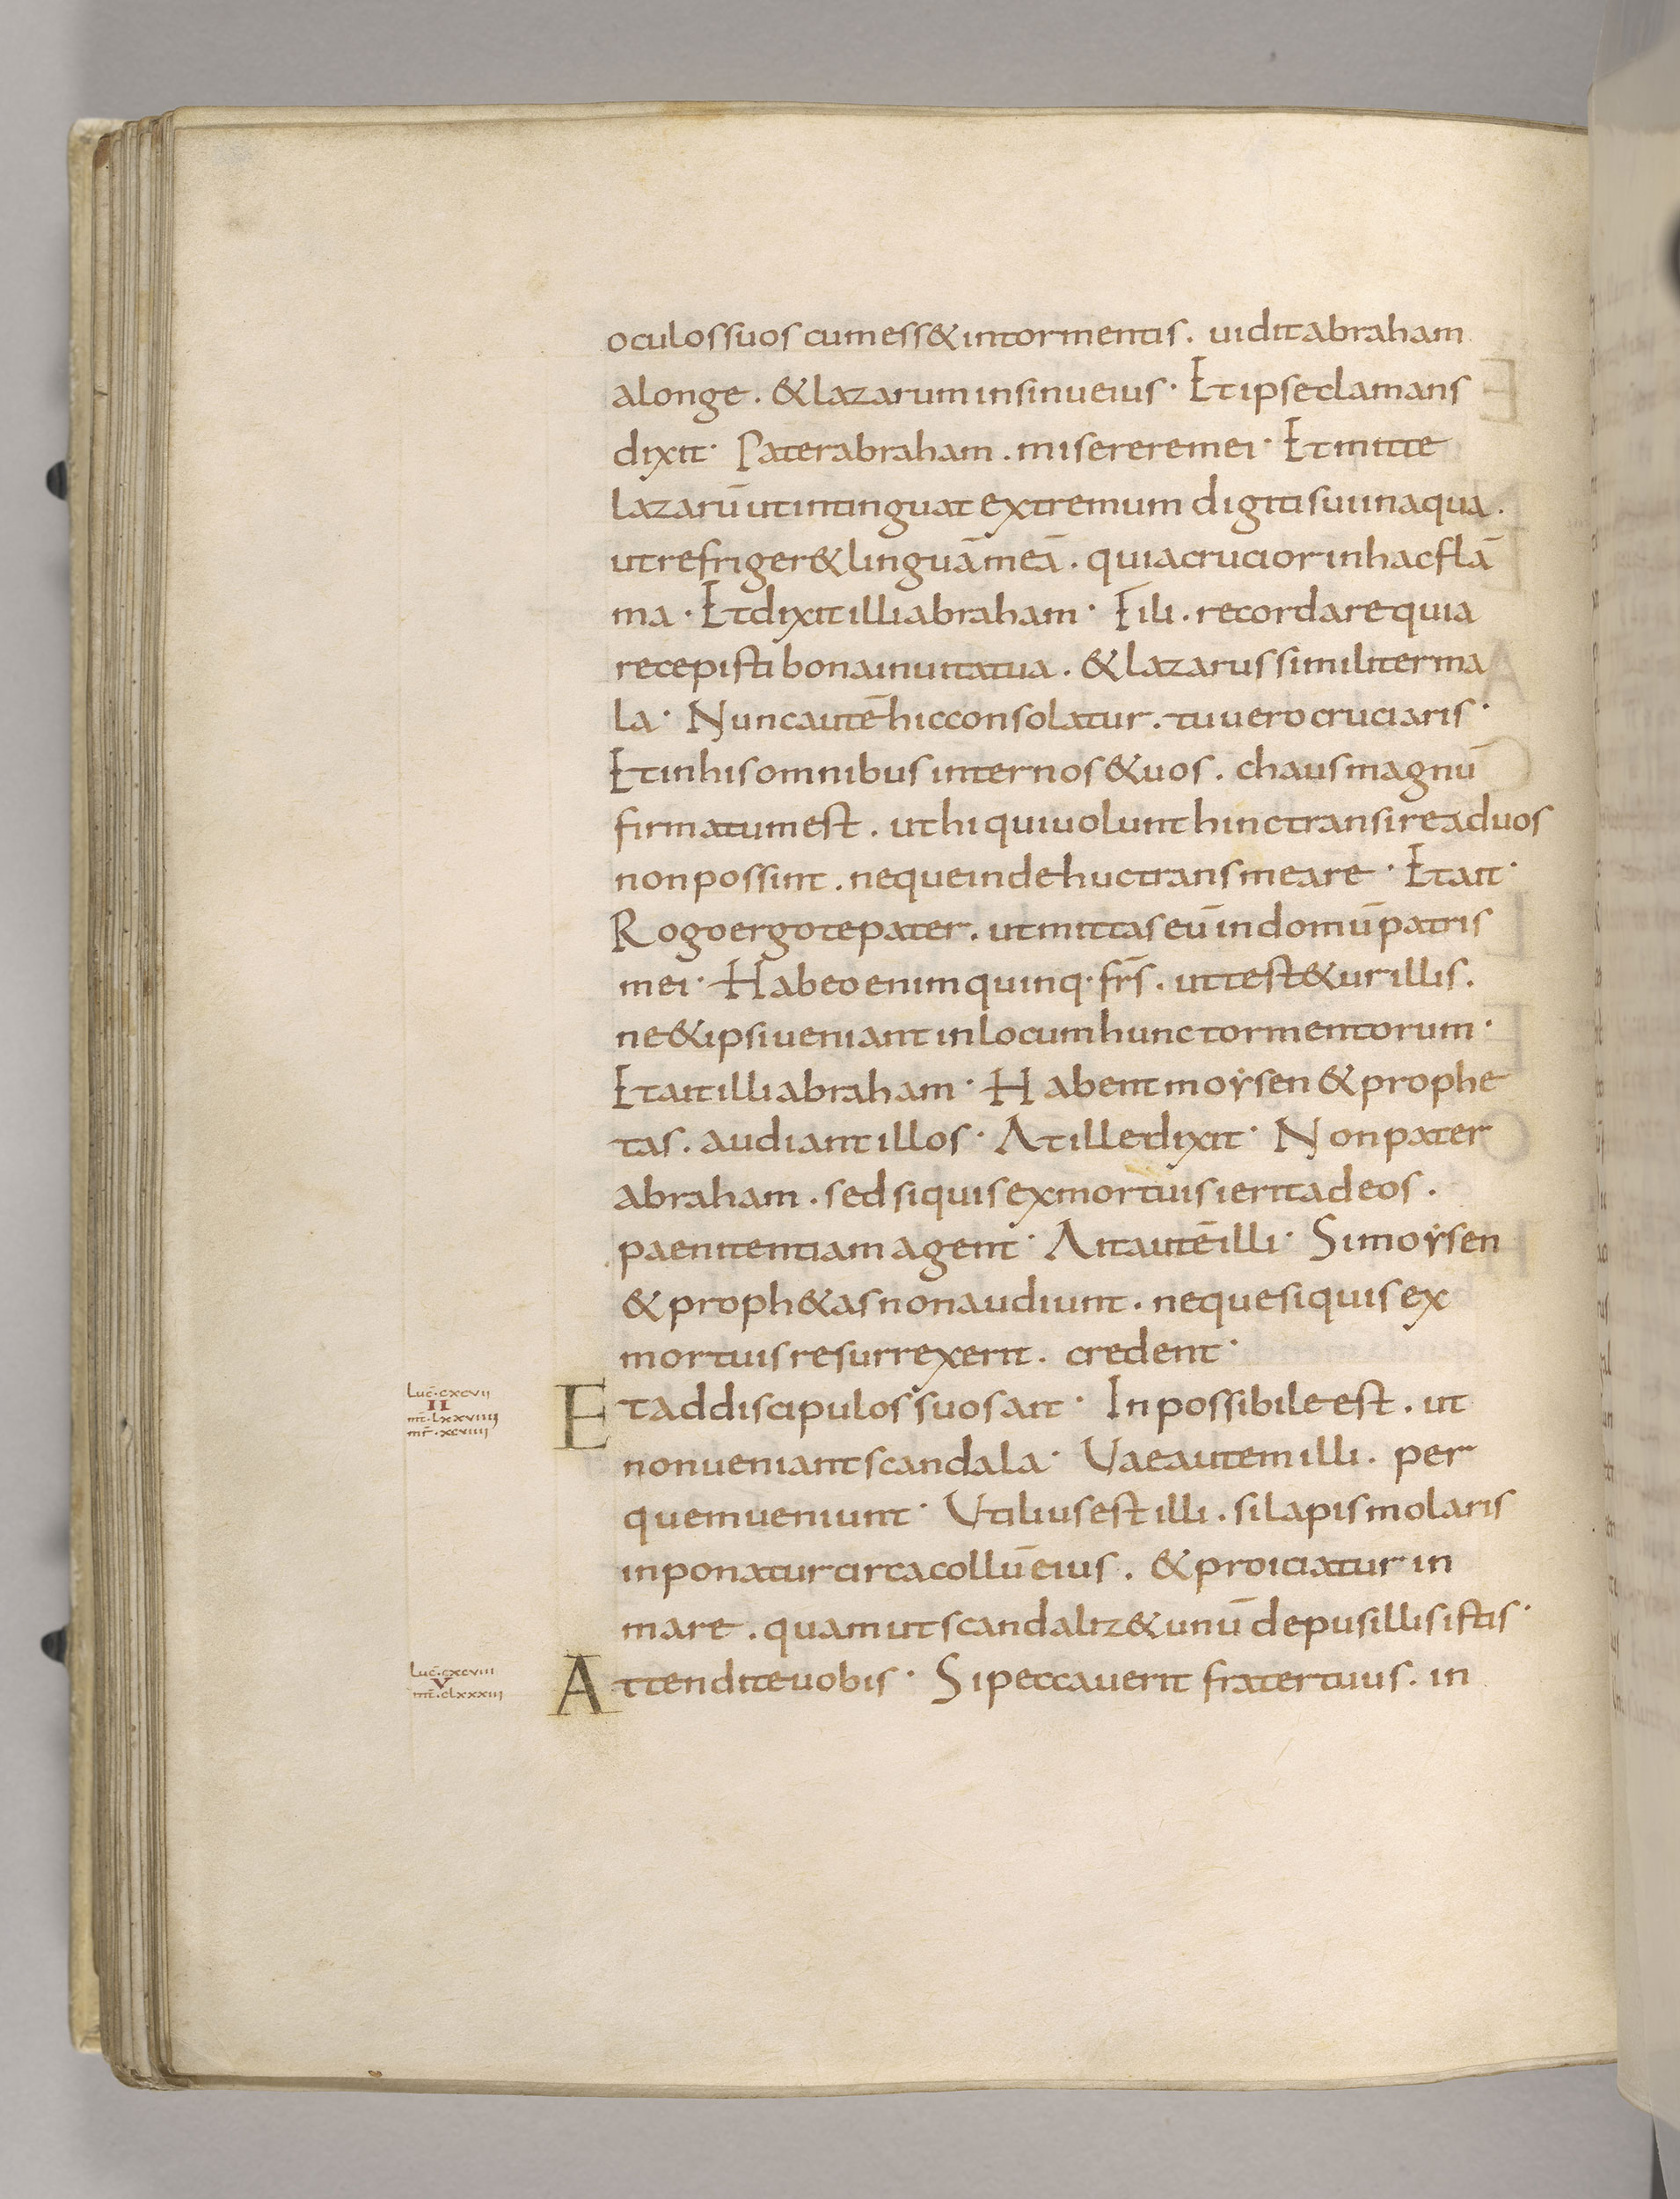 oculos suos cum ess& in tormentis. uidit abraham
a longe. & lazarum in sinu eius· Et ipse clamans
dixit· Pater abraham. miserere mei· Et mitte
lazarū ut intinguat extremum digiti sui in aqua.
ut refriger& linguā meā. quia crucior in hac flā
ma· Et dixit illi abraham· Fili. recordare quia
recepisti bona in uita tua. & lazarus similiter ma
la· Nunc autē hic consolatur. tu uero cruciaris·
Et in his omnibus inter nos & uos. chaus magnū
firmatum est. ut hi qui uolunt hinc transire ad uos
non possint. neque inde huc transmeare· Et ait·
Rogo ergo te pater. ut mittas eū in domū patris
mei· Habeo enim quinq· frs̄. ut test&ur illis.
ne & ipsi ueniant in locum hunc tormentorum·
Et ait illi abraham· Habent moẏsen & prophe
tas. audiant illos· At ille dixit· Non pater
abraham. sed si quis ex mortuis ierit ad eos.
paenitentiam agent· Ait autē illi· Si moẏsen
& proph&as non audiunt. neque si quis ex
mortuis resurrexerit. credent·
Luc̄·cxcvii
II
mt̄·Lxxviiii
mr̄·xcviiii
Et ad discipulos suos ait· Inpossibile est. ut
non ueniant scandala· Uae autem illi. per
quem ueniunt· Utilius est illi. si lapis molaris
inponatur circa collū eius. & proiciatur in
mare. quam ut scandaliz& unū de pusillis istis·
Luc̄·cxcviii
V
mt̄·cLxxxiii
Attendite uobis· Si peccauerit frater tuus. in